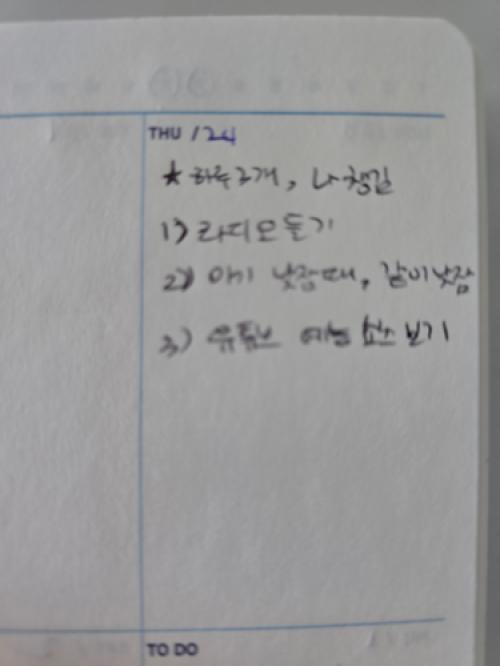 THU / 24
★ 하루 3개, 나 챙김
1) 라디오 듣기
2) 아기 낮잠때, 같이 낮잠
3) 유튜브 예능 쇼츠 보기
TO DO